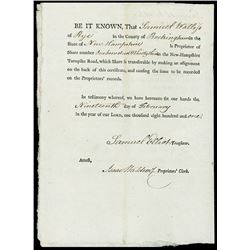 BE IT KNOWN, That Samuel Wallis
of Rye in the County of Rockingham in the
State of New Hampshire is Proprietor of
Share number in the New-Hampshire
Turnpike Road, which Share is transferable by making an assignment
on the back of this certificate, and causing the same to be recorded
on the Proprietors' records.
In testimony whereof, we have hereunto set our hands the
Nineteenth day of February
in the year of our LORD, one thousand eight hundred and one.
Samuel Elliot
Attest,
Isaac Waldron Proprietors' Clerk.